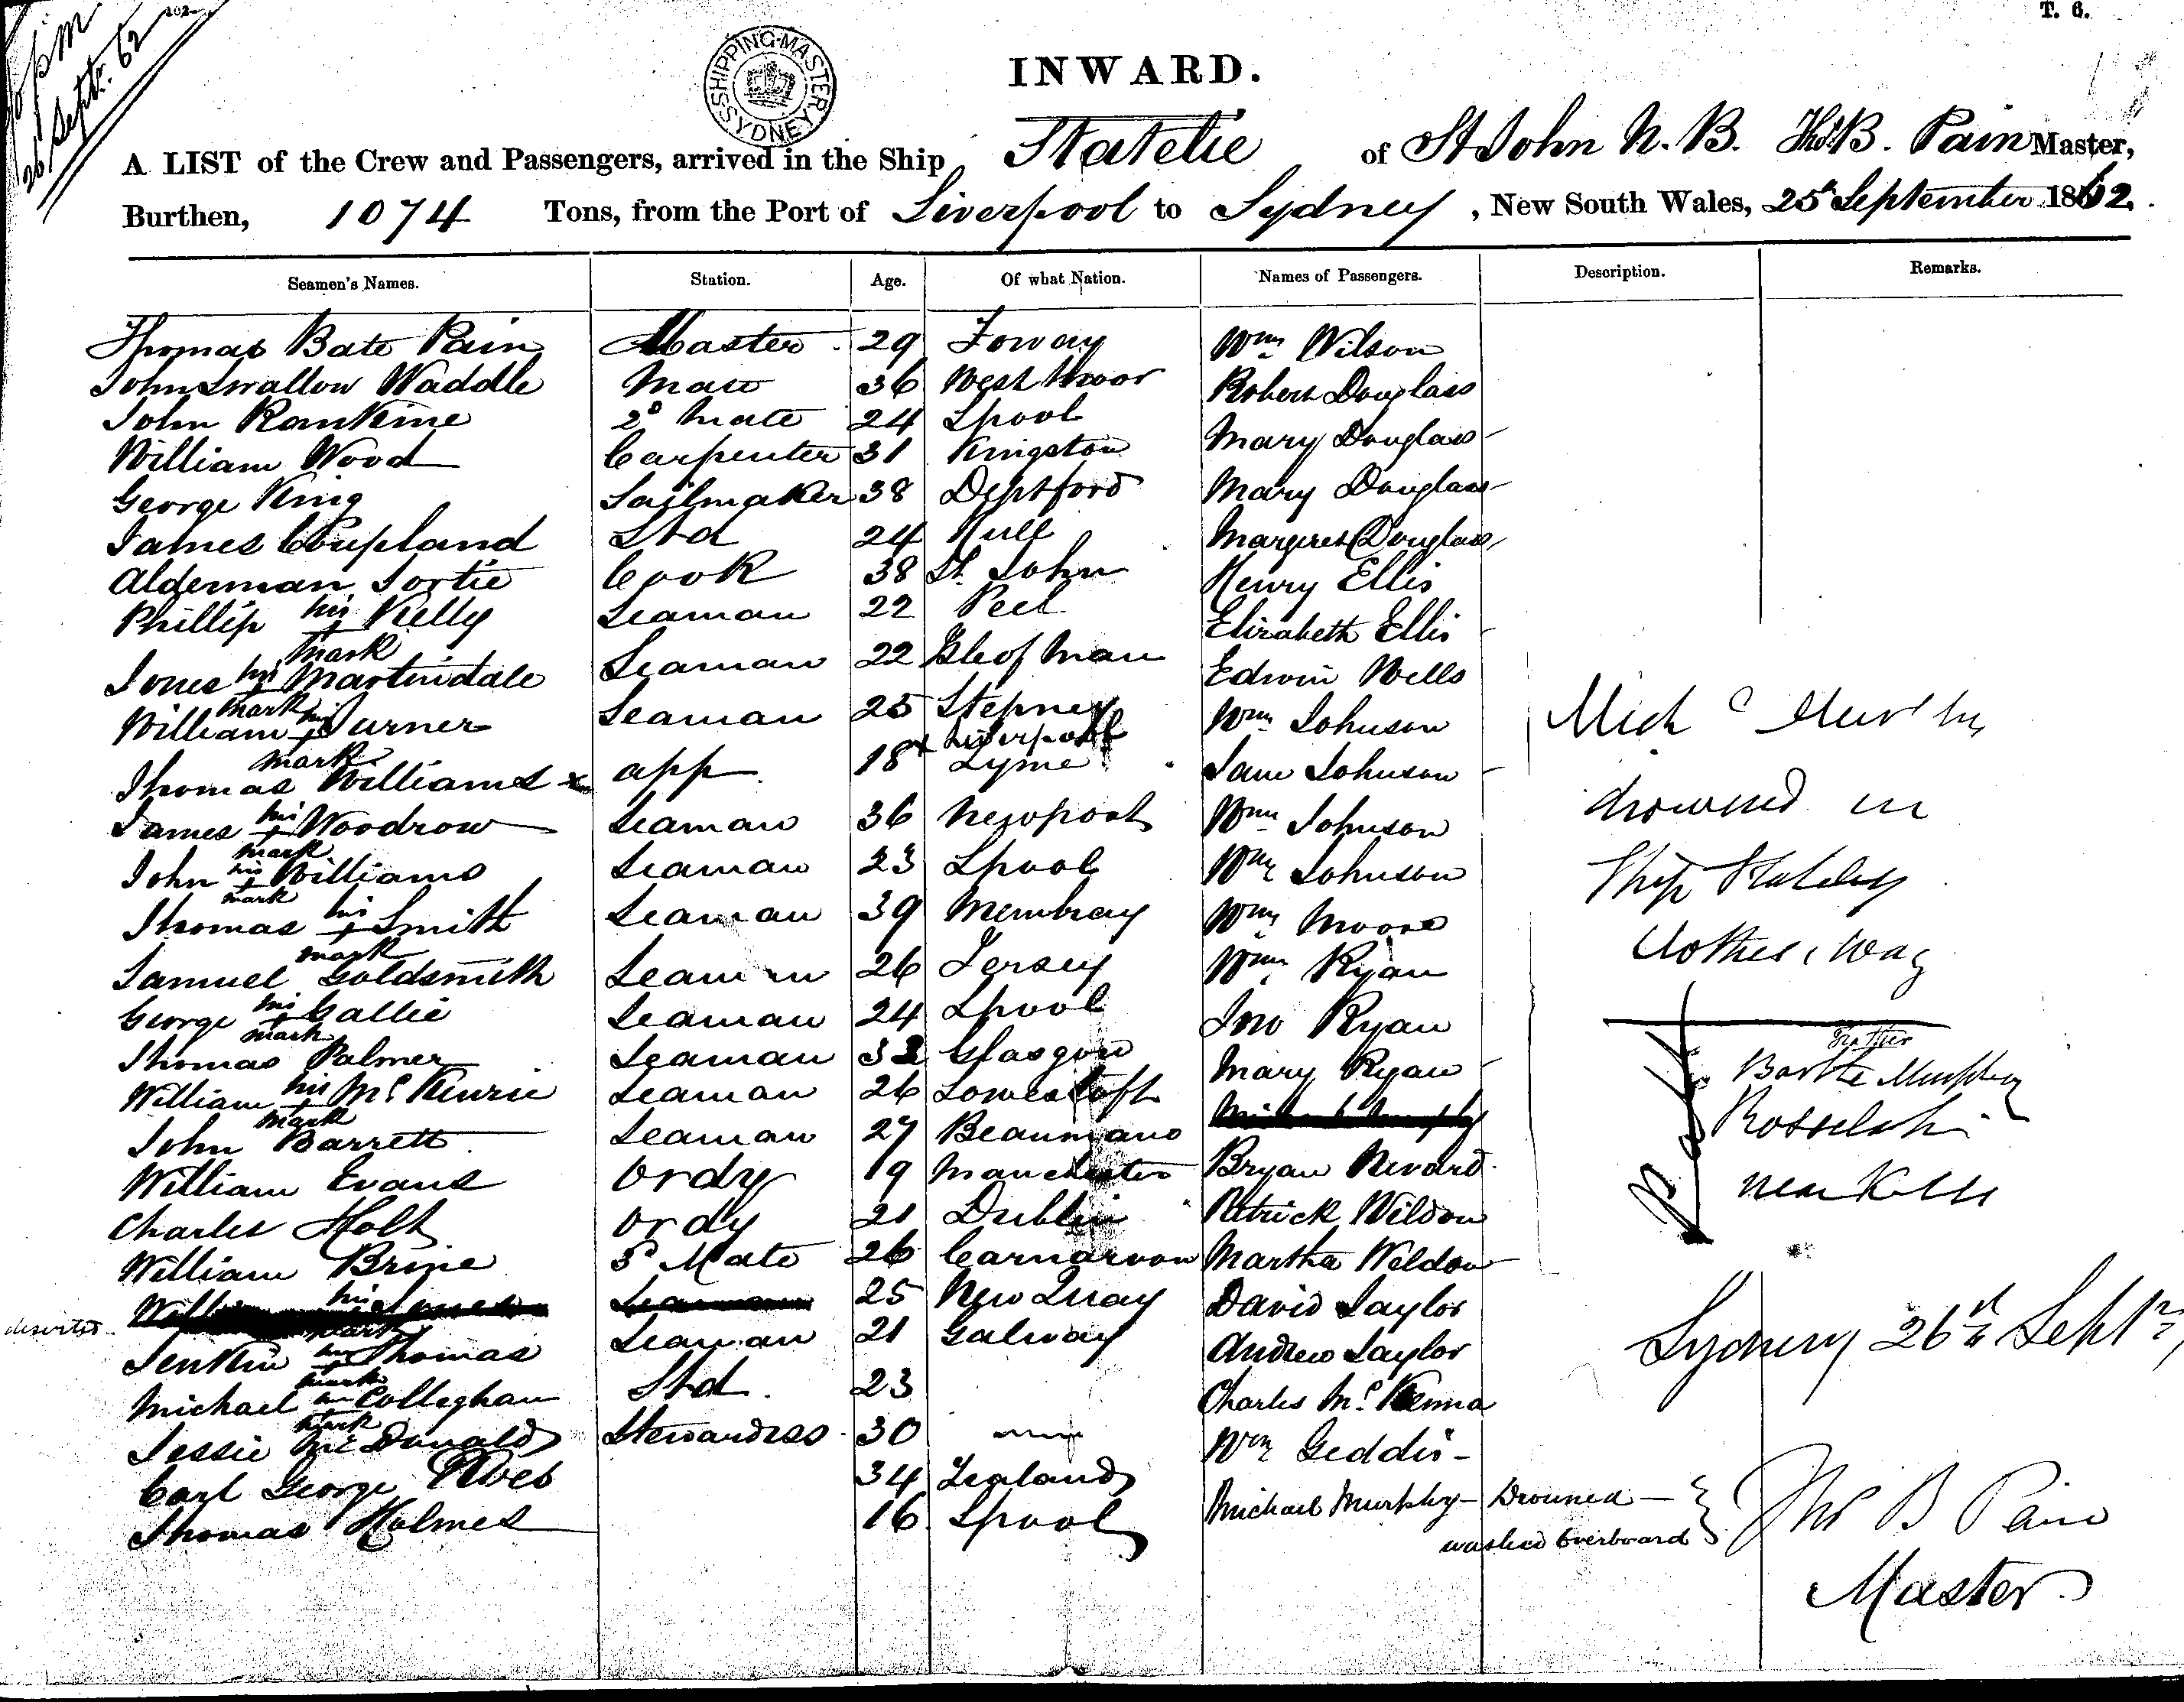 26 Septr. 62
T. 6.
SHIPPING-MASTER SYDNEY
INWARD.
A LIST of the Crew and Passengers, arrived in the Ship Statelie of St John N. B. Thos B. Pain Master,
Burthen, 1074 Tons, from the Port of Liverpool to Sydney, New South Wales, 25th September 1862.
Seamen's Names. Station. Age. Of what Nation. Names of Passengers. Description. Remarks.
Thomas Bate Pain Master 29 Foway Wm Wilson
John Swallow Waddle Mate 36 West Moor Robert Douglass
John Rankine 2d Mate 24 Lpool Mary Douglass
William Wood Carpenter 31 Kingston Mary Douglass
George King Sailmaker 38 Deptford Margeret Douglass
James Coupland Std 24 Hull Henry Ellis
Alderman Sortie Cook 38 St. John Elizabeth Ellis
Phillip his + mark Kelly Seaman 22 Peel Edwin Wells
Jones his + mark Martindale Seaman 22 Isle of Man Wm Johnson
William his + mark Turner Seaman 25 Stepney Jane Johnson
Liverpool
Thomas Williams app 18 Lyme Wm Johnson
James his + mark Woodrow Seaman 36 Newport Wm Johnson
John his + mark Williams Seaman 23 Lpool Wm Moore
Thomas his + mark Smith Seaman 39 Wm Ryan
Samuel Goldsmith Seaman 26 Jersey Jno Ryan
George his + mark Gallie Seaman 24 Lpool Mary Ryan
Thomas Palmer Seaman 32 Glasgow
William his + mark McKenzie Seaman 26 Lowestoft Bryan
John Barrett Seaman 27 Beaumano Patrick Wildon
William Evans Ordy 19 Manchester Martha Weldon
Charles Holt Ordy 21 Dublin David Taylor
William Brine 3d Mate 26 Carnarvon Andrew Taylor
deserted his mark Seaman 25 New Quay Charles McKenna
Jenkin his + mark Thomas Seaman 21 Galway Wm Geddis
Michael his + mark Colleghan Std 23 Michael Murphy - Drowned -
Jessie McDonald Stewardess 30 washed overboard
Carl George 34 Zealand
Thomas Holmes 16 Lpool
Mich Murphy
drowned in
Ship Stateley
Clothes
Father
Murphy
near Kells
Sydney 26th Septr
Thos B Pain
Master